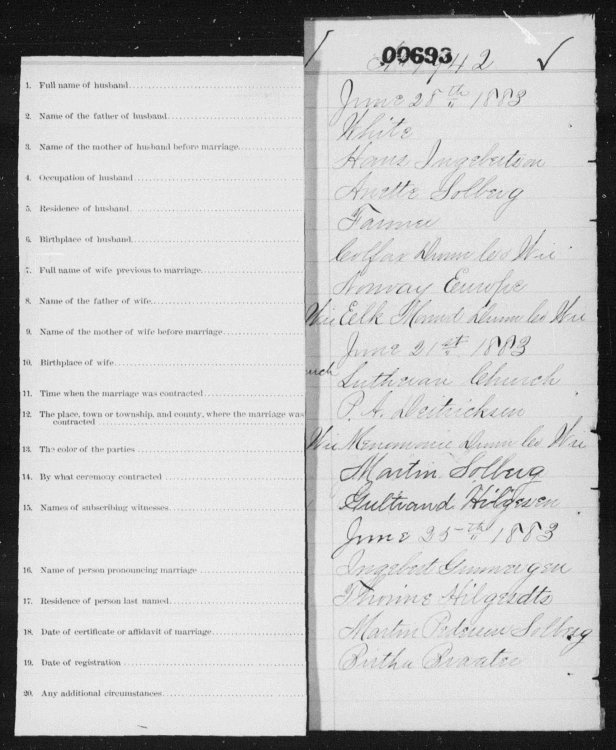 00693
No 1942
1. Full name of husband
2. Name of the father of husband
3. Name of the mother of husband before marriage
4. Occupation of husband
5. Residence of husband
6. Birthplace of husband
7. Full name of wife previous to marriage
8. Name of the father of wife
9. Name of the mother of wife before marriage
10. Birthplace of wife
11. Time when the marriage was contracted
12. The place, town or township, and county, where the marriage was
contracted
13. The color of the parties
14. By what ceremony contracted
15. Names of subscribing witnesses
16. Name of person pronouncing marriage
17. Residence of person last named
18. Date of certificate or affidavit of marriage
19. Date of registration
20. Any additional circumstances
June 28th 1883
White
Hans Ingebertson
Anette Solberg
Farmer
Colfax Dunn Co Wis
Norway Europe
Wis Eelk Mound Dunn Co Wis
June 21st 1883
Lutheran Church
P. A. Deitricksen
Wis Menomonie Dunn Co Wis
Martin Solberg
Hilgesen
June 25th 1883
Ingebert
Hilgesdts
Martin Pedersen Solberg
Birtha Braaten